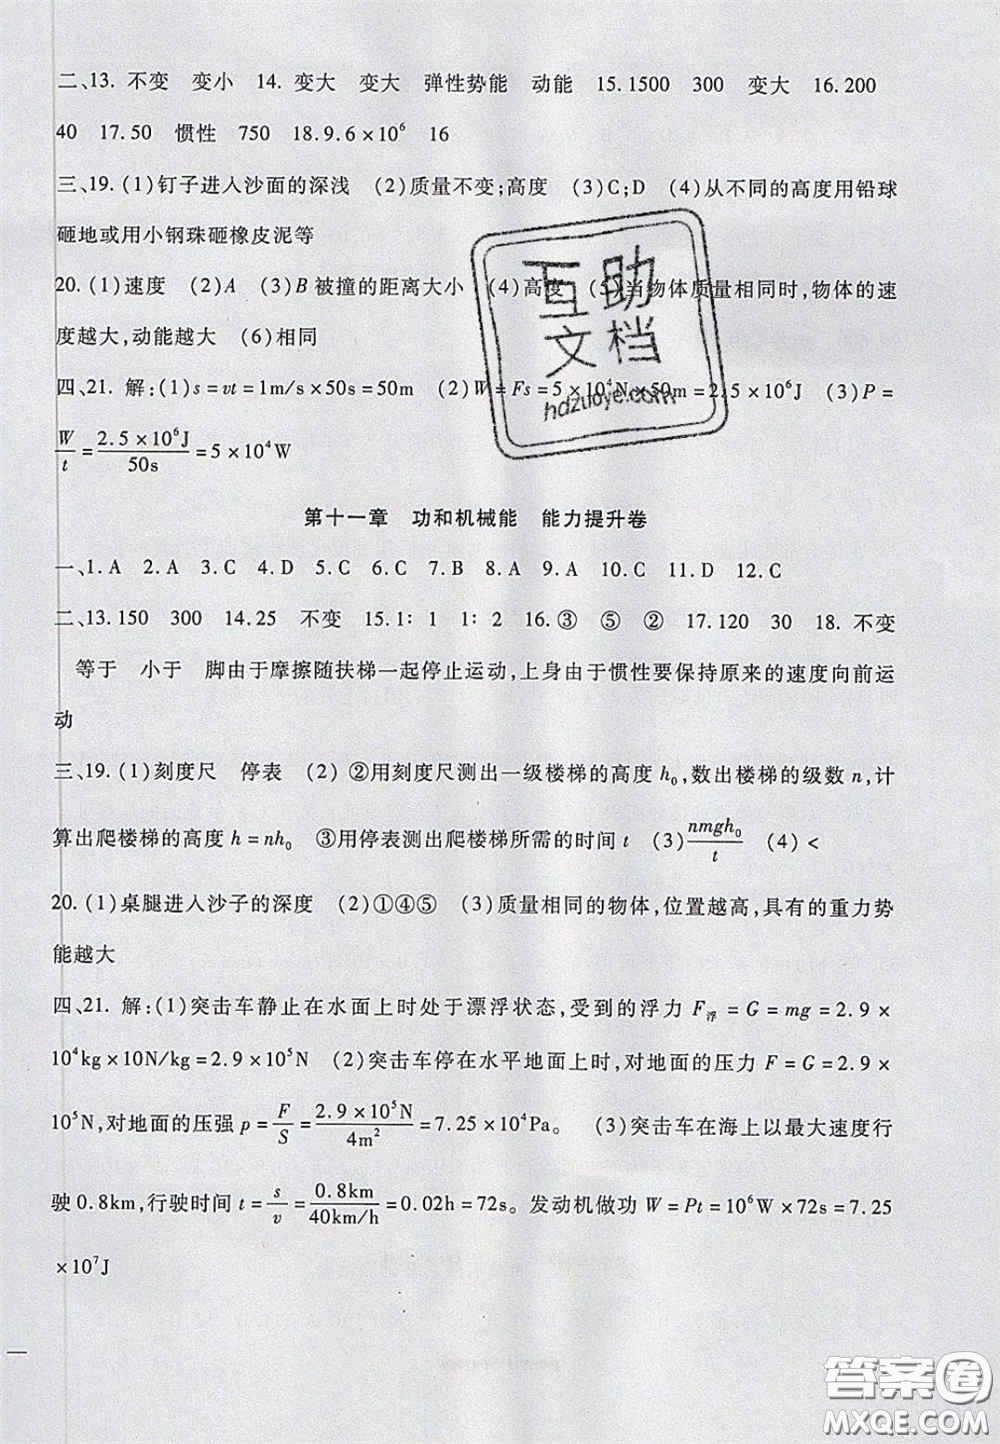 二、13. 不变　变小　14. 变大　变大　弹性势能　动能　15.1500　300　变大　16.200
40　17.50　惯性　750　18.9.6×10⁶　16
三、19. (1)钉子进入沙面的深浅　(2)质量不变;高度　(3)C;D　(4)从不同的高度用铅球
砸地或用小钢珠砸橡皮泥等
20. (1)速度　(2)A　(3)B被撞的距离大小　(4)高度　(5)当物体质量相同时,物体的速
度越大,动能越大　(6)相同
四、21. 解:(1)s=vt=1m/s×50s=50m　(2)W=Fs=5×10⁴N×50m=2.5×10⁶J　(3)P=
W/t=2.5×10⁶J/50s=5×10⁴W
第十一章　功和机械能　能力提升卷
一、1. A　2. A　3. C　4. D　5. C　6. C　7. B　8. A　9. A　10. C　11. D　12. C
二、13.150　300　14.25　不变　15.1∶1　1∶2　16.③　⑤　②　17.120　30　18. 不变
等于　小于　脚由于摩擦随扶梯一起停止运动,上身由于惯性要保持原来的速度向前运
动
三、19. (1)刻度尺　停表　(2) ②用刻度尺测出一级楼梯的高度h₀,数出楼梯的级数n,计
算出爬楼梯的高度h=nh₀　③用停表测出爬楼梯所需的时间t　(3)nmgh₀/t　(4)<
20. (1)桌腿进入沙子的深度　(2)①④⑤　(3)质量相同的物体,位置越高,具有的重力势
能越大
四、21. 解:(1)突击车静止在水面上时处于漂浮状态,受到的浮力F浮=G=mg=2.9×
10⁴kg×10N/kg=2.9×10⁵N　(2)突击车停在水平地面上时,对地面的压力F=G=2.9×
10⁵N,对地面的压强p=F/S=2.9×10⁵N/4m²=7.25×10⁴Pa。　(3)突击车在海上以最大速度行
驶0.8km,行驶时间t=s/v=0.8km/40km/h=0.02h=72s。发动机做功W=Pt=10⁶W×72s=7.25
×10⁷J
互助
文档
hdzuoye.com
答案圈
MXQE.COM